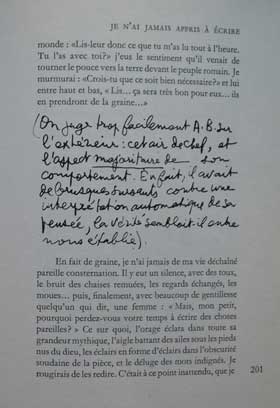 JE N'AI JAMAIS APPRIS À ÉCRIRE
monde : «Lis-leur donc ce que tu m'as lu tout à l'heure.
Tu l'as avec toi?» j'eus le sentiment qu'il venait de
tourner le pouce vers la terre devant le peuple romain. Je
murmurai : «Crois-tu que ce soit bien nécessaire?» et lui
entre haut et bas, « Lis... ça sera très bon pour eux... ils
en prendront de la graine...»
(On juge trop facilement A.B. sur
l'extérieur : cet air de chef, et
l'aspect majoritaire de son
comportement. En fait, il avait
de brusques sursauts contre une
interprétation automatique de sa
pensée, la vérité semblait-il entre
nous établie).
En fait de graine, je n'ai jamais de ma vie déchaîné
pareille consternation. Il y eut un silence, avec des toux,
le bruit des chaises remuées, les regards échangés, les
moues... puis, finalement, avec beaucoup de gentillesse
quelqu'un qui dit, une femme : « Mais, mon petit,
pourquoi perdez-vous votre temps à écrire des choses
pareilles? » Ce sur quoi, l'orage éclata dans toute sa
grandeur mythique, l'aigle battant des ailes sous les pieds
nus du dieu, les éclairs en forme d'éclairs dans l'obscurité
soudaine de la pièce, et le déluge des mots indignés. Je
rougirais de les redire. C'était à ce point inattendu, que je
201